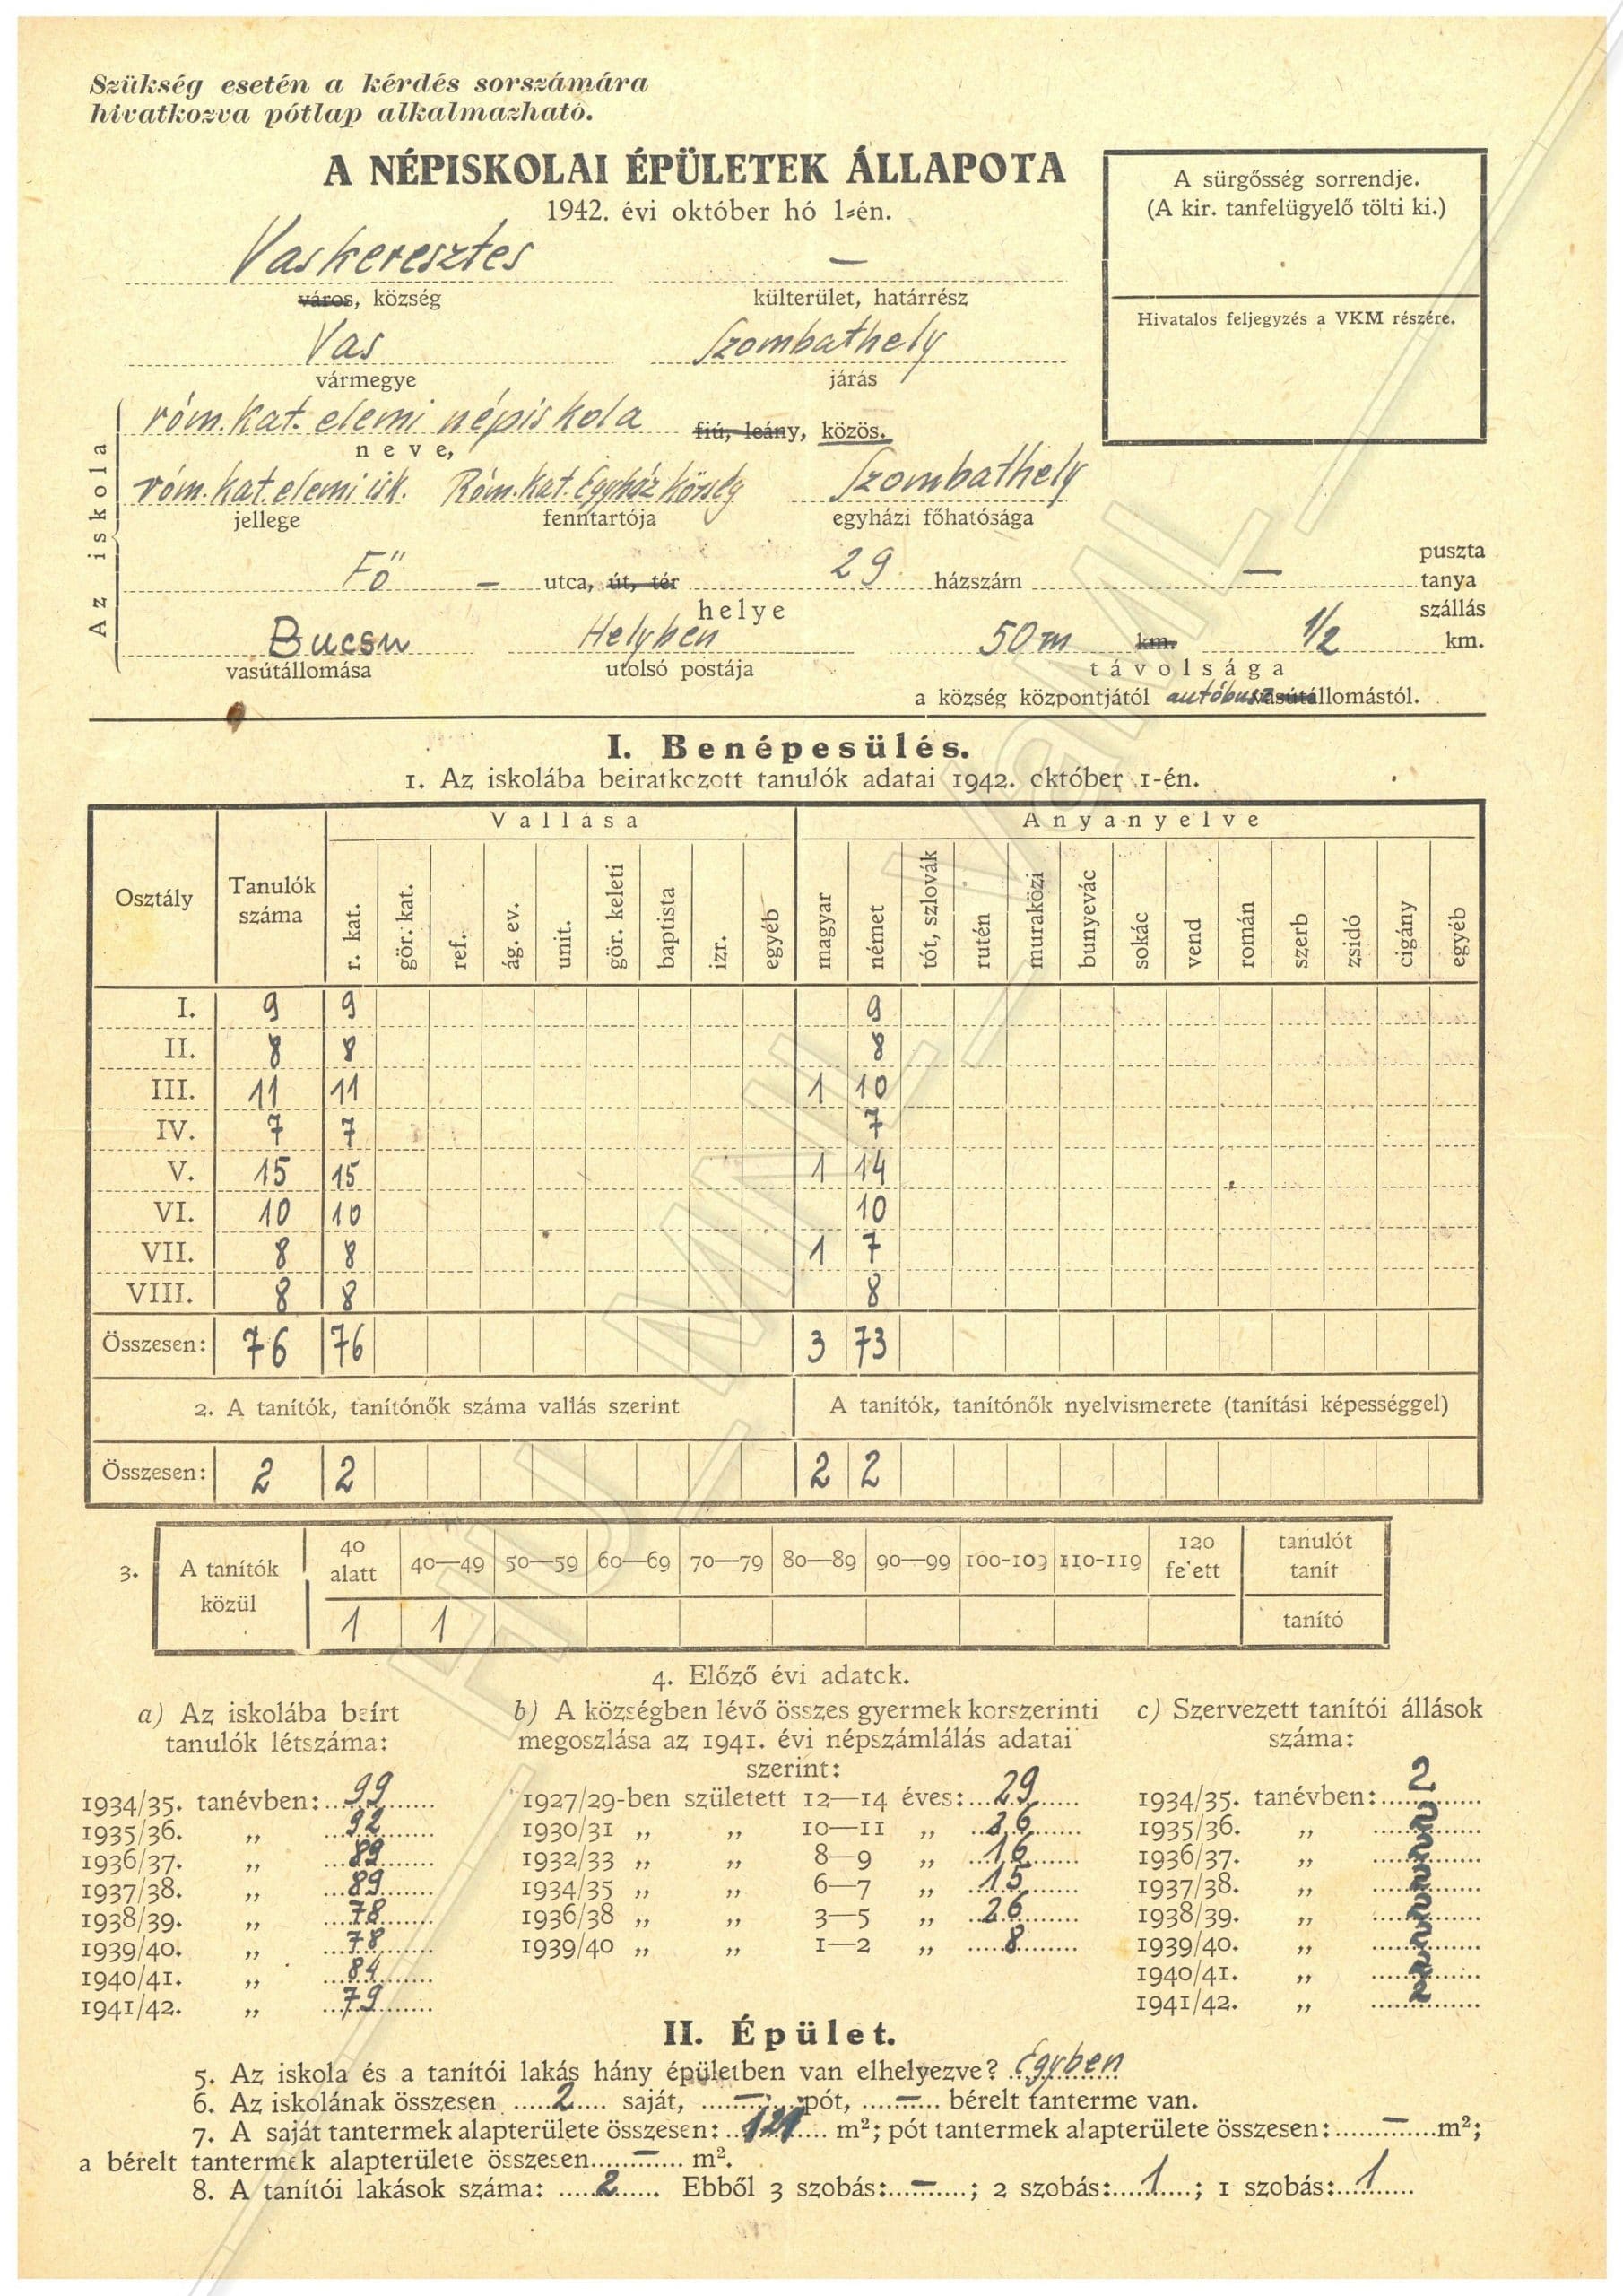 Szükség esetén a kérdés sorszámára
hivatkozva pótlap alkalmazható.
A NÉPISKOLAI ÉPÜLETEK ÁLLAPOTA
1942. évi október hó 1-én.
A sürgősség sorrendje.
(A kir. tanfelügyelő tölti ki.)
Hivatalos feljegyzés a VKM részére.
Vaskeresztes –
város, község külterület, határrész
Vas Szombathely
vármegye járás
Az iskola
róm. kat. elemi népiskola fiú, leány, közös.
neve,
róm. kat. elemi isk. Róm. kat. Egyház község Szombathely
jellege fenntartója egyházi főhatósága
Fő – utca, út, tér 29 házszám – puszta
tanya
szállás
helye
Bucsu Helyben 50 m km. 1/2 km.
vasútállomása utolsó postája távolsága
a község központjától autóbusz vasútállomástól.
I. Benépesülés.
1. Az iskolába beiratkozott tanulók adatai 1942. október 1-én.
Osztály Tanulók száma Vallása Anyanyelve
r. kat. gör. kat. ref. ág. ev. unit. gör. keleti baptista izr. egyéb magyar német tót, szlovák rutén muraközi bunyevác sokác vend román szerb zsidó cigány egyéb
I. 9 9 9
II. 8 8 8
III. 11 11 1 10
IV. 7 7 7
V. 15 15 1 14
VI. 10 10 10
VII. 8 8 1 7
VIII. 8 8 8
Összesen: 76 76 3 73
2. A tanítók, tanítónők száma vallás szerint A tanítók, tanítónők nyelvismerete (tanítási képességgel)
Összesen: 2 2 2 2
3. A tanítók közül 40 alatt 40—49 50—59 60—69 70—79 80—89 90—99 100-109 110-119 120 felett tanulót tanít
1 1 tanító
4. Előző évi adatok.
a) Az iskolába beírt
tanulók létszáma:
1934/35. tanévben: 99
1935/36. „ 92
1936/37. „ 89
1937/38. „ 89
1938/39. „ 78
1939/40. „ 78
1940/41. „ 84
1941/42. „ 79
b) A községben lévő összes gyermek korszerinti
megoszlása az 1941. évi népszámlálás adatai
szerint:
1927/29-ben született 12—14 éves: 29
1930/31 „ „ 10—11 „ 26
1932/33 „ „ 8—9 „ 16
1934/35 „ „ 6—7 „ 15
1936/38 „ „ 3—5 „ 26
1939/40 „ „ 1—2 „ 8
c) Szervezett tanítói állások
száma:
1934/35. tanévben: 2
1935/36. „ 2
1936/37. „ 2
1937/38. „ 2
1938/39. „ 2
1939/40. „ 2
1940/41. „ 2
1941/42. „ 2
II. Épület.
5. Az iskola és a tanítói lakás hány épületben van elhelyezve? Egyben
6. Az iskolának összesen 2 saját, – pót, – bérelt tanterme van.
7. A saját tantermek alapterülete összesen: 121 m²; pót tantermek alapterülete összesen: – m²;
a bérelt tantermek alapterülete összesen – m².
8. A tanítói lakások száma: 2 Ebből 3 szobás: –; 2 szobás: 1; 1 szobás: 1
HU_MNL_VaML